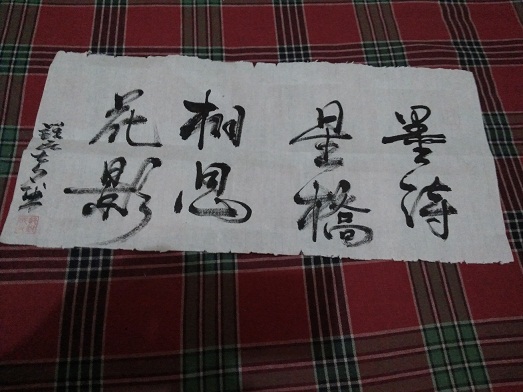 墨待
星橋
相思
花影